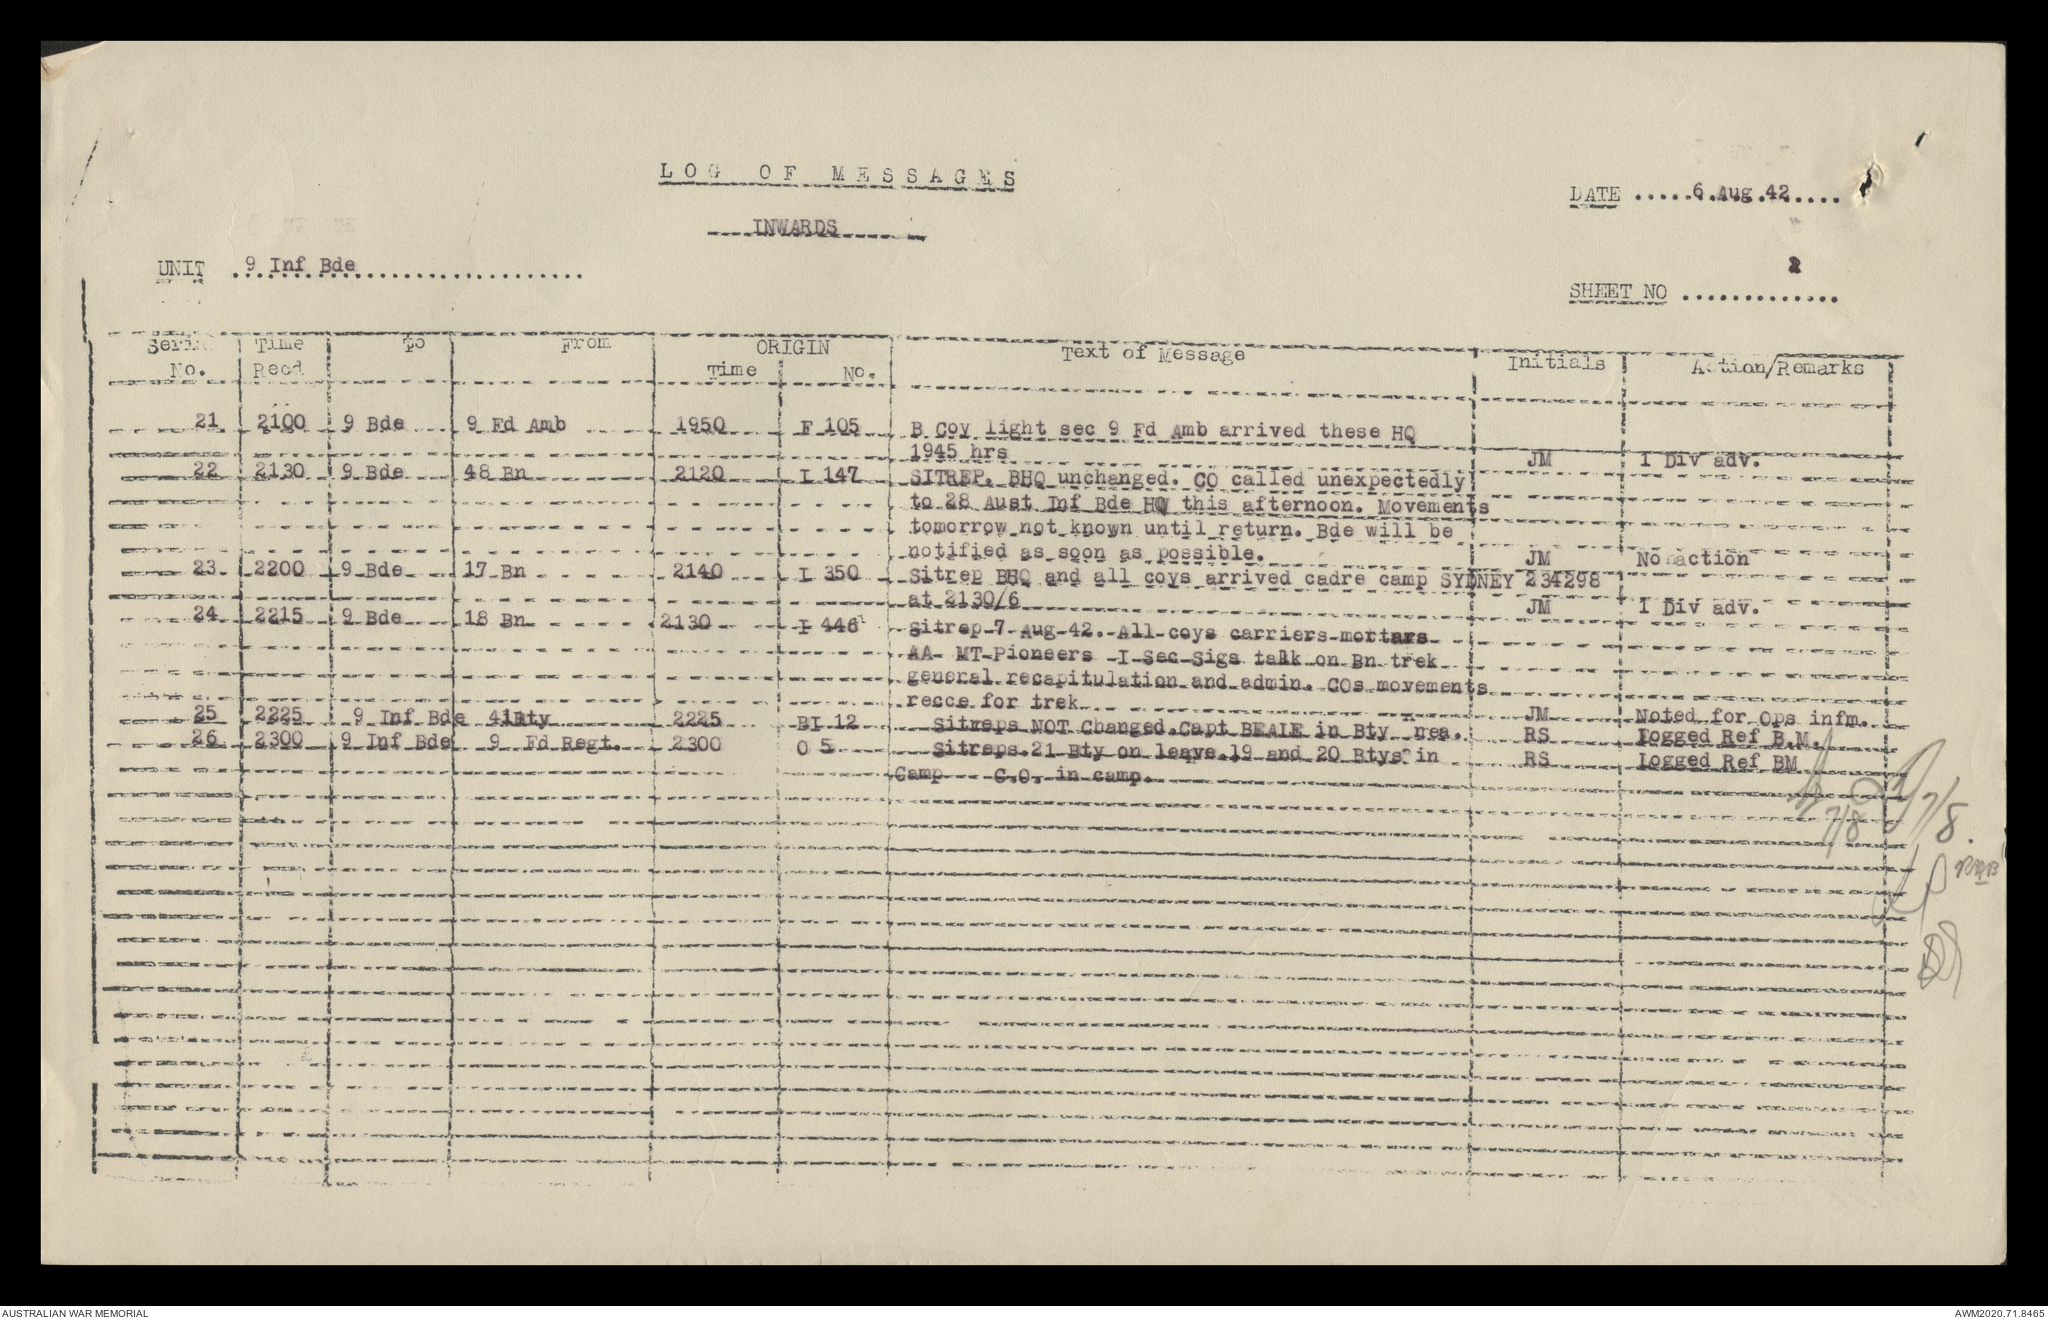 LOG OF MESSAGES
INWARDS
DATE .....6 Aug 42.....
UNIT ..9 Inf Bde............................
2
SHEET NO .............
Serial No. Time Recd To From ORIGIN Time No. Text of Message Initials Action/Remarks
21 2100 9 Bde 9 Fd Amb 1950 F 105 B Coy light sec 9 Fd Amb arrived these HQ
1945 hrs JM 1 Div adv.
22 2130 9 Bde 48 Bn 2120 I 147 SITREP. BHQ unchanged. CO called unexpectedly
to 28 Aust Inf Bde HQ this afternoon. Movements
tomorrow not known until return. Bde will be
notified as soon as possible. JM No action
23 2200 9 Bde 17 Bn 2140 I 350 Sitrep BHQ and all coys arrived cadre camp SYDNEY 234298
at 2130/6 JM 1 Div adv.
24 2215 9 Bde 18 Bn 2130 I 446 Sitrep 7 Aug 42. All coys carriers mortars
AA- MT-Pioneers -I Sec-Sigs talk on Bn trek
general recapitulation and admin. COs movements
recce for trek JM Noted for Ops infm.
25 2225 9 Inf Bde 41Bty 2225 BI 12 Sitreps NOT Changed.Capt BEALE in Bty nea. RS Logged Ref B.M.
26 2300 9 Inf Bde 9 Fd Regt. 2300 O 5 Sitreps.21 Bty on leave.19 and 20 Btys in RS Logged Ref BM
Camp C.O. in camp.
7/8
7/8.
AUSTRALIAN WAR MEMORIAL
AWM2020.71.8465